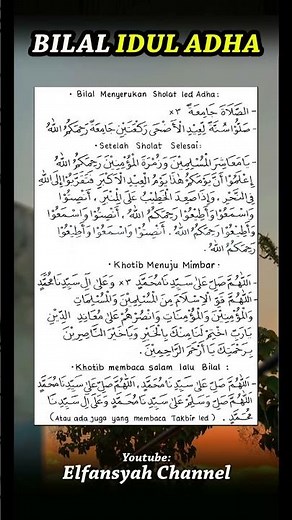 BILAL IDUL ADHA
• Bilal Menyerukan Sholat Ied Adha :
- الصَّلَاةَ جَامِعَةً ×٣
- صَلُّوا سُنَّةً لِعِيْدِ الْأَضْحَى رَكْعَتَيْنِ جَامِعَةً رَحِمَكُمُ اللهُ
• Setelah Sholat Selesai :
- يَا مَعَاشِرَ الْمُسْلِمِيْنَ وَزُمْرَةَ الْمُؤْمِنِيْنَ رَحِمَكُمُ اللهُ
إِعْلَمُوْا أَنَّ يَوْمَكُمْ هٰذَا يَوْمُ الْعِيْدِ الْأَكْبَرِ فَتَقَرَّبُوْا إِلَى اللهِ
فِي النَّحْرِ، وَإِذَا صَعِدَ الْخَطِيْبُ عَلَى الْمِنْبَرِ، أَنْصِتُوْا
وَاسْمَعُوْا وَأَطِيْعُوْا رَحِمَكُمُ اللهُ، أَنْصِتُوْا وَاسْمَعُوْا
وَأَطِيْعُوْا رَحِمَكُمُ اللهُ. أَنْصِتُوْا وَاسْمَعُوْا وَأَطِيْعُوْا
رَحِمَكُمُ اللهُ.
• Khotib Menuju Mimbar :
- اَللّٰهُمَّ صَلِّ عَلَى سَيِّدِنَا مُحَمَّدٍ ×٢ وَعَلَى آلِ سَيِّدِنَا مُحَمَّدٍ
- اَللّٰهُمَّ قَوِّ الْإِسْلَامَ مِنَ الْمُسْلِمِيْنَ وَالْمُسْلِمَاتِ
وَالْمُؤْمِنِيْنَ وَالْمُؤْمِنَاتِ وَانْصُرْهُمْ عَلَى مُعَانِدِ الدِّيْنِ
يَا رَبِّ اخْتِمْ لَنَا مِنْكَ بِالْخَيْرِ وَيَا خَيْرَ النَّاصِرِيْنَ
بِرَحْمَتِكَ يَا أَرْحَمَ الرَّاحِمِيْنَ.
• Khotib membaca salam lalu Bilal :
- اَللّٰهُمَّ صَلِّ عَلَى سَيِّدِنَا مُحَمَّدٍ، اَللّٰهُمَّ صَلِّ عَلَى سَيِّدِنَا مُحَمَّدٍ
اَللّٰهُمَّ صَلِّ وَسَلِّمْ عَلَى سَيِّدِنَا مُحَمَّدٍ وَعَلَى آلِ سَيِّدِنَا
مُحَمَّدٍ. (Atau ada juga yang membaca Takbir Ied)
Youtube:
Elfansyah Channel